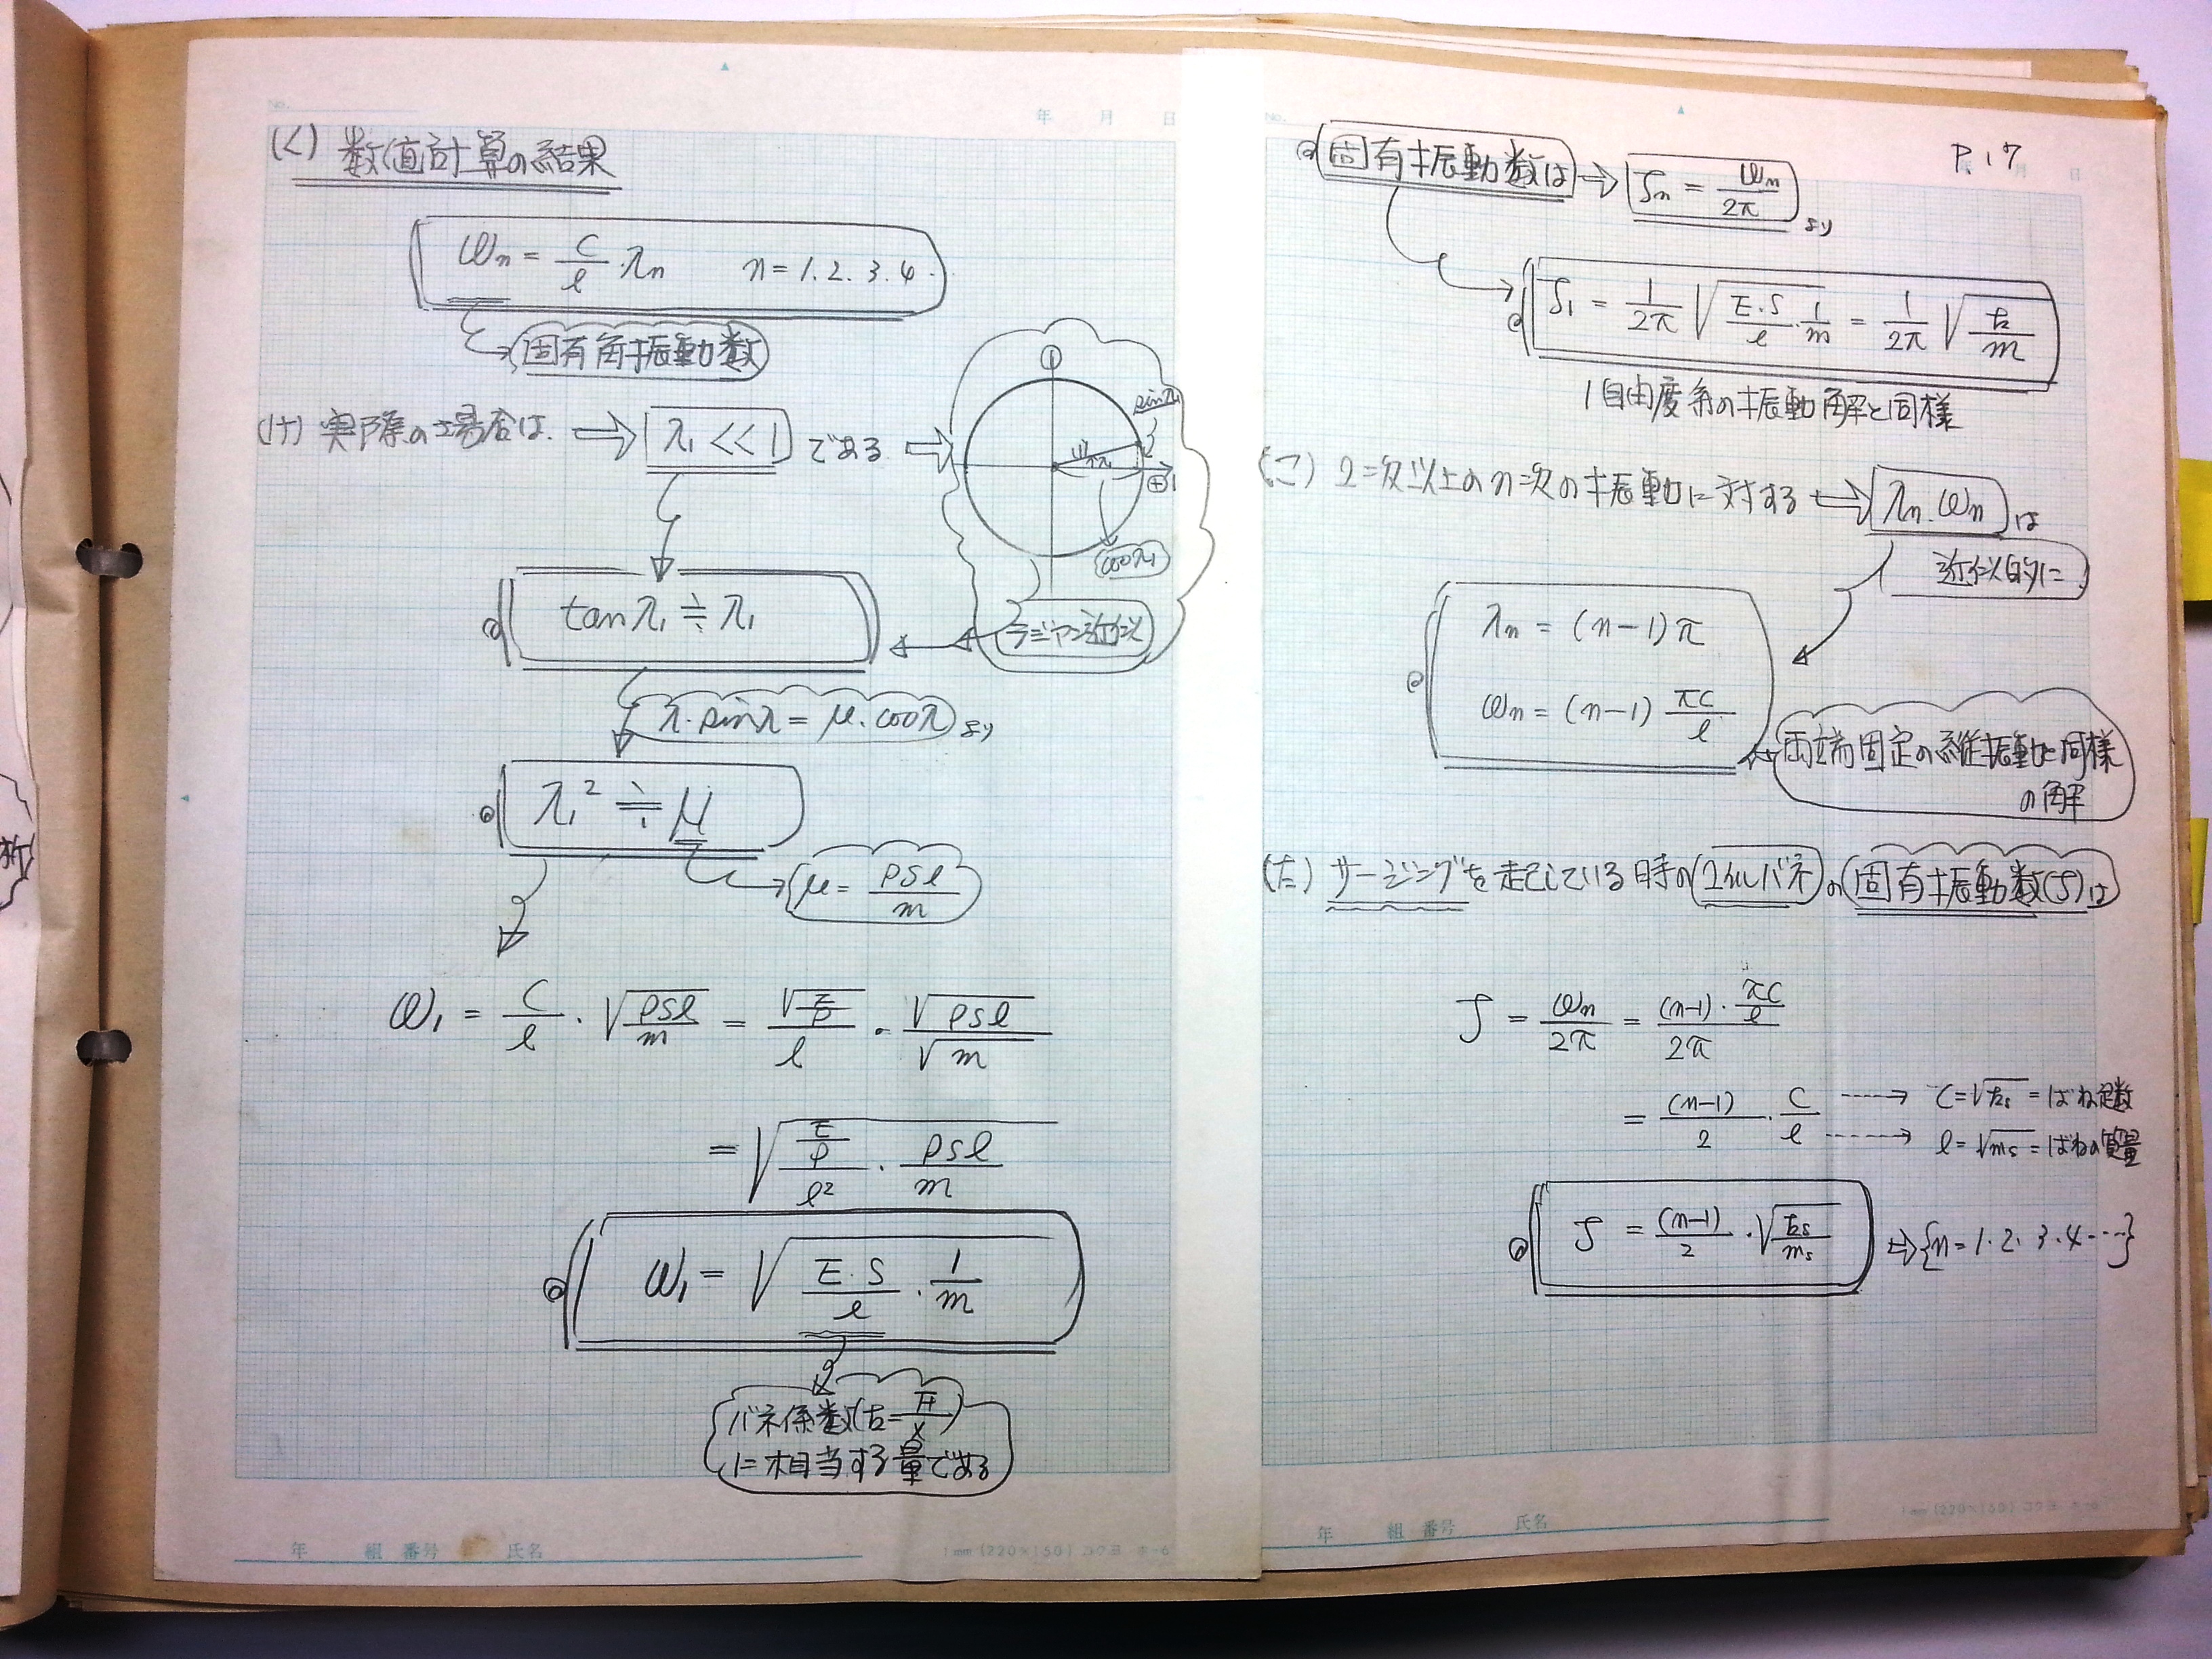 No.
年 月 日
(く) 数値計算の結果
ωn = C/ℓ · λn   n = 1. 2. 3. 4 ·
固有角振動数
(け) 実際の場合は ⇒ λ₁ << 1 である ⇒
sinλ₁
⊕1
cosλ₁
tanλ₁ ≒ λ₁
ラジアン近似
λ· sinλ = μ· cosλ より
λ₁² ≒ μ
μ = ρsℓ/m
ω₁ = C/ℓ · √(ρsℓ/m) = √(E/ρ)/ℓ · √(ρsℓ)/√m
= √((E/ρ)/ℓ² · ρsℓ/m)
ω₁ = √(E·S/ℓ · 1/m)
バネ係数(k = F/x)
に相当する量である
年 組 番号 氏名
1mm (220×150) コクヨ ホ-6
No.
P 17
月 日
固有振動数は ⇒ fn = ωn/2π より
f₁ = 1/2π √(E·S/ℓ · 1/m) = 1/2π √(k/m)
1自由度系の振動解と同様
(こ) 2次以上のn次の振動に対する ⇒ λn. ωn は
近似的に
λn = (n-1)π
ωn = (n-1) πC/ℓ
両端固定の縦振動と同様
の解
サージングを起している時の コイルバネ の 固有振動数(f)は
f = ωn/2π = (n-1)· πC/ℓ / 2π
= (n-1)/2 · C/ℓ ----→ C = √ks = ばね定数
----→ ℓ = √ms = ばねの質量
f = (n-1)/2 · √(ks/ms) ⇒ {n = 1· 2· 3· 4 ···}
年 組 番号 氏名
1mm (220×150) コクヨ ホ-6